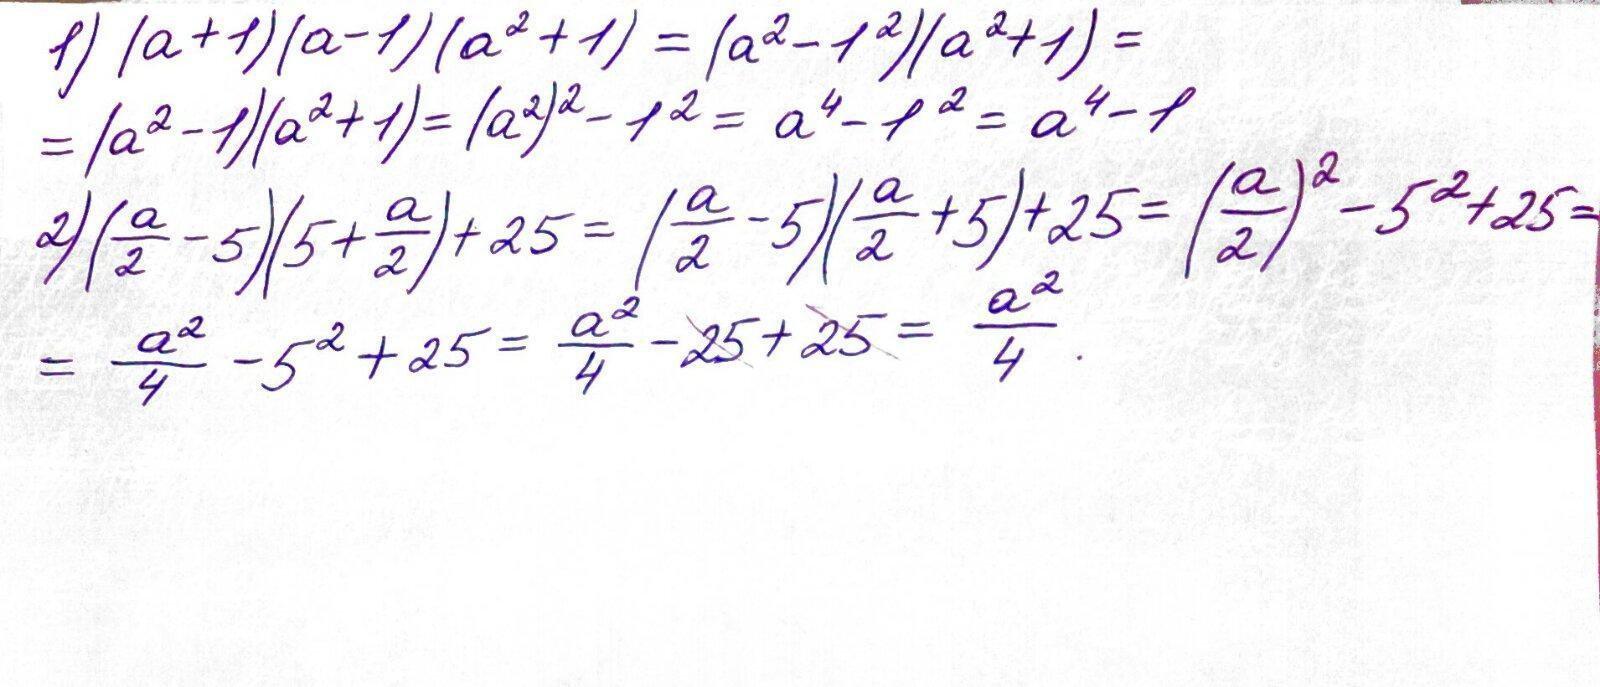 1) (a+1)(a-1)(a²+1) = (a²-1²)(a²+1) =
= (a²-1)(a²+1) = (a²)²-1² = a⁴-1² = a⁴-1
2) (a/2 - 5)(5 + a/2) + 25 = (a/2 - 5)(a/2 + 5) + 25 = (a/2)² - 5² + 25 =
= a²/4 - 5² + 25 = a²/4 - 25 + 25 = a²/4.